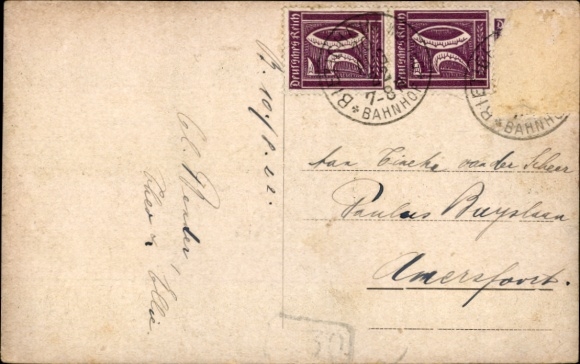 Deutsches Reich
Deutsches Reich
75
75
BIE
7-8
* BAHNHO
BIE
* BAHNHO
B. 10/8.22.
Theo & Ellie.
Aan Tineke van der Scheer
Paulus Buyslaan
Amersfoort.